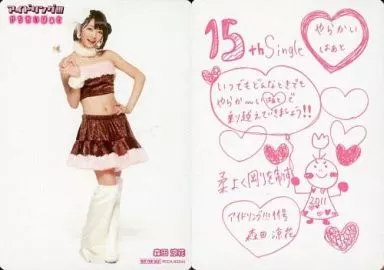 アイドリング!!!
森田 涼花
15thSingle
やらかい
はぁと
いつでもどんなときでも
やらか〜い(はぁと)で
乗り越えていきましょう!!
柔よく剛を制す
2011
アイドリング!!!11号
森田 涼花